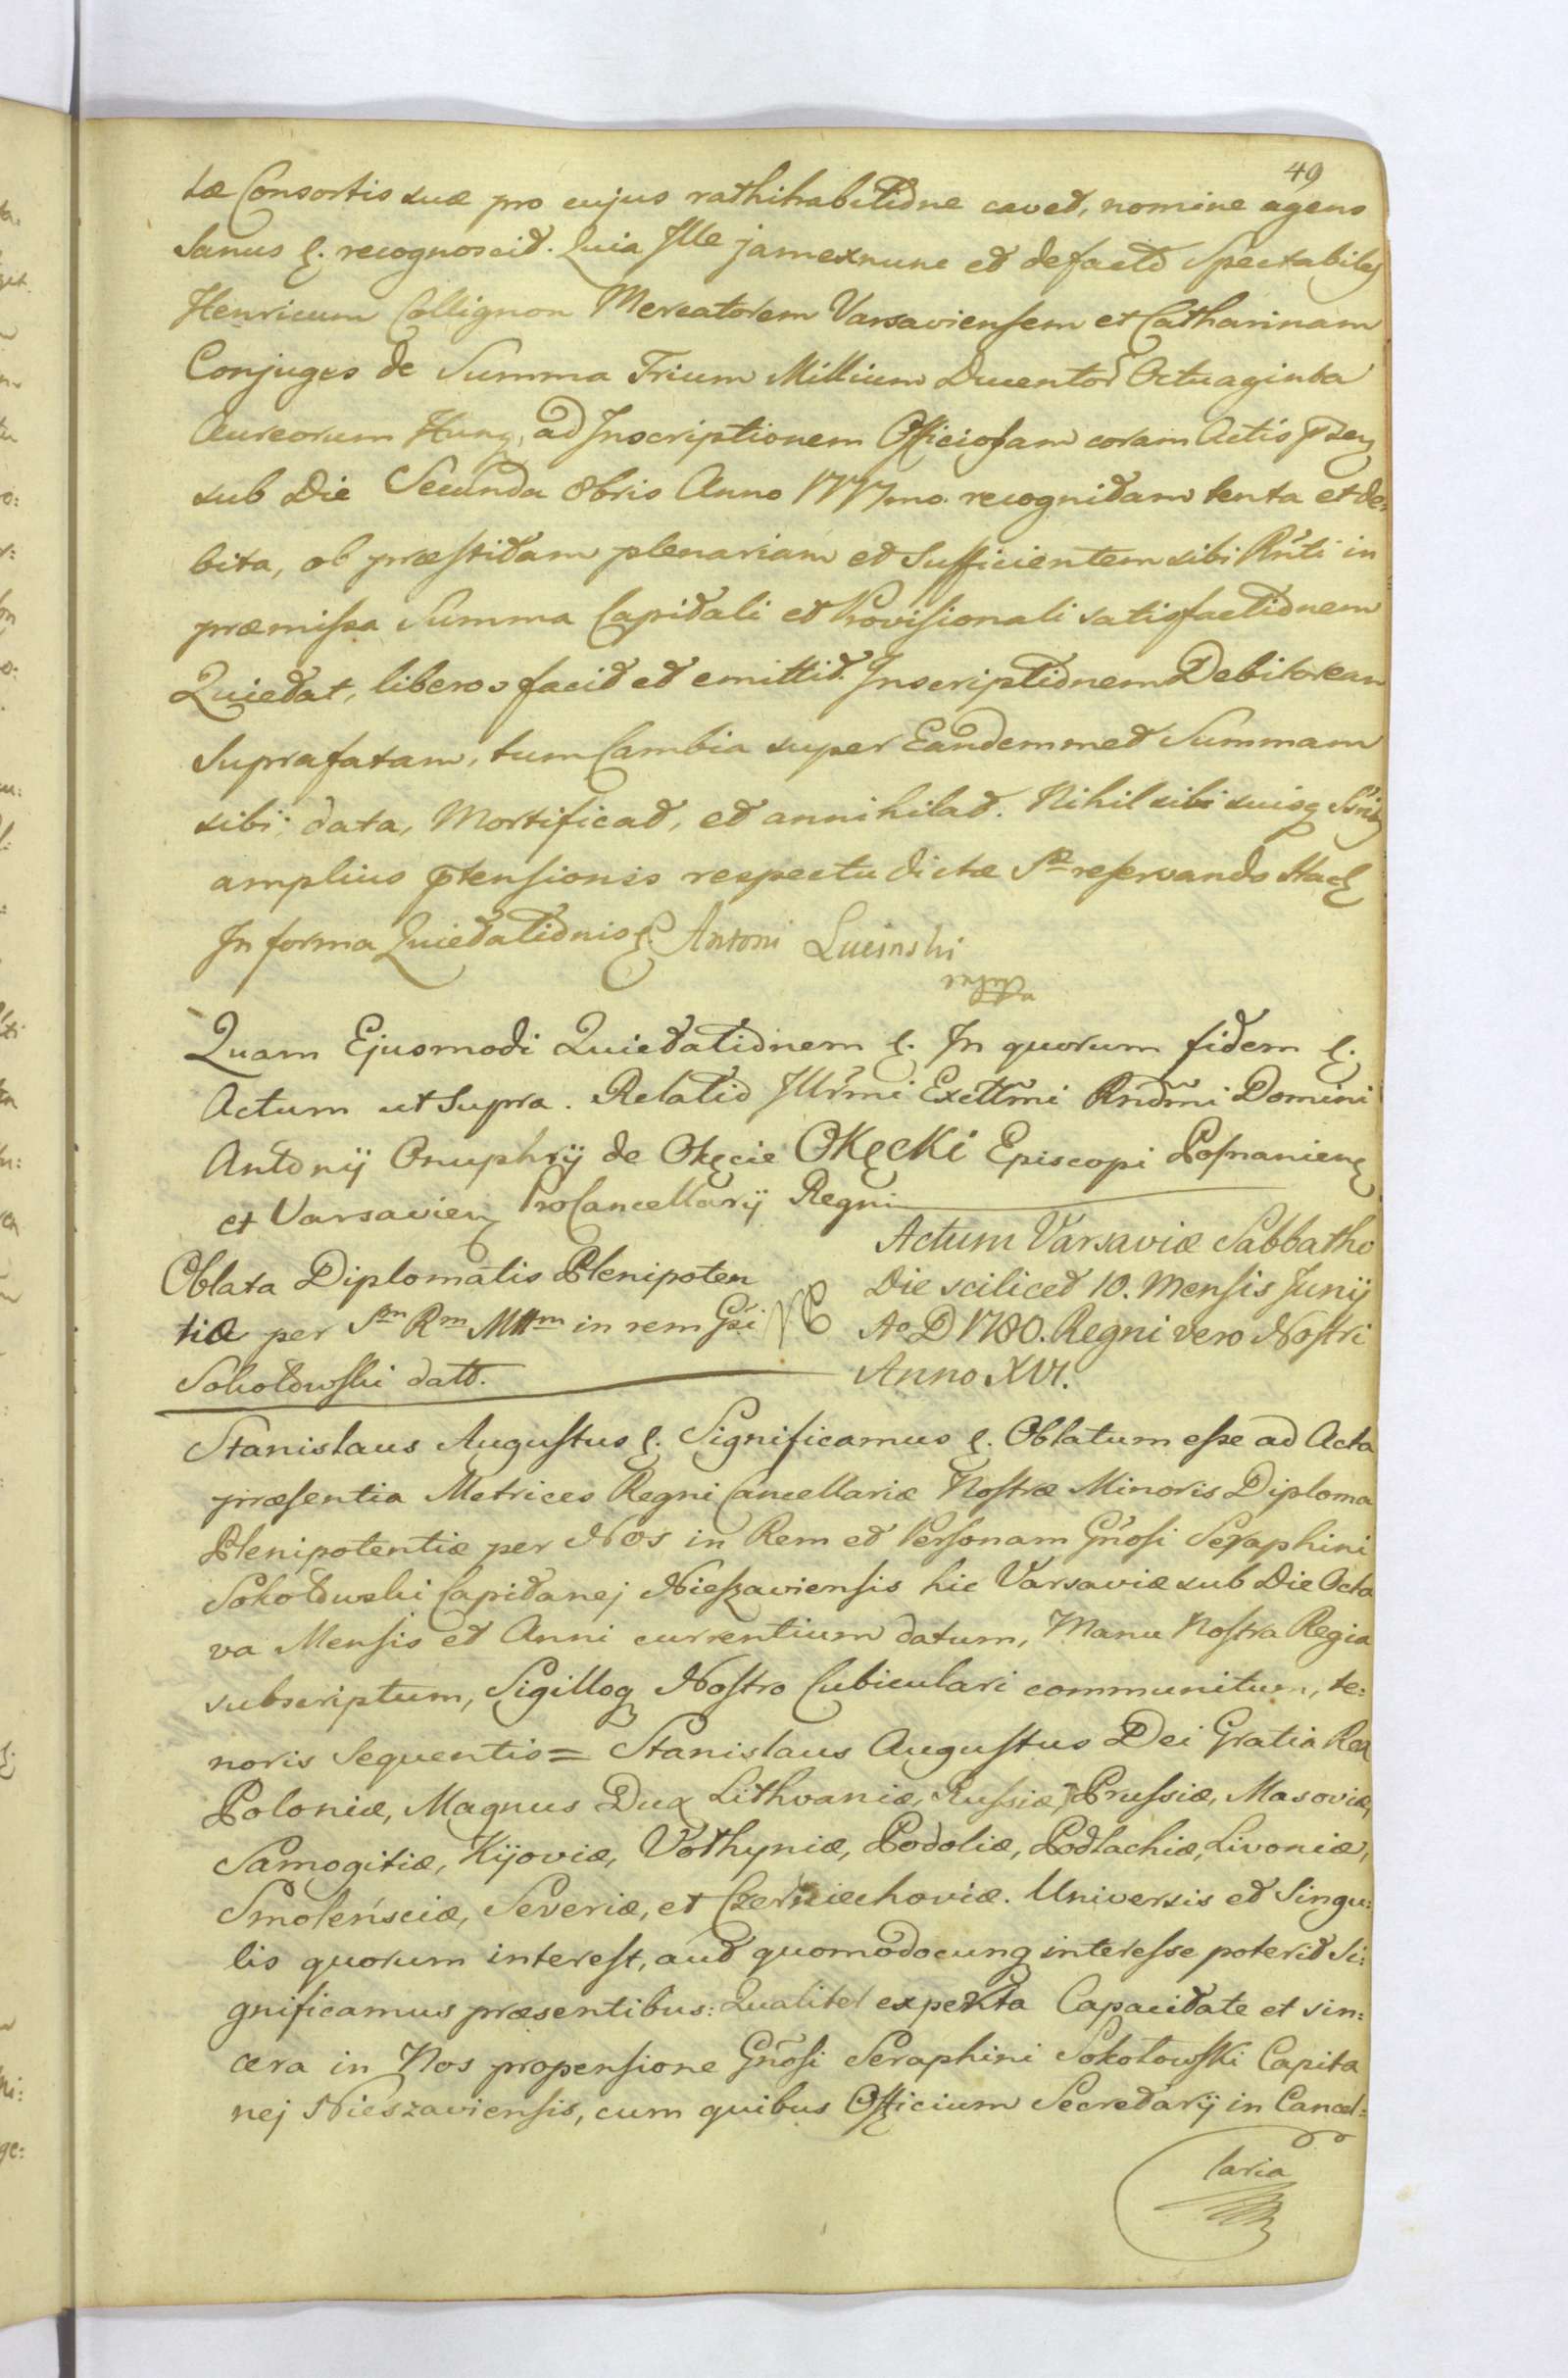 49
tæ Consortis suæ pro cujus rathihabitióne cavet, nomine agens
Sanus &. recognoscit. Quia Ille jamexnunc et defacto Spectabiles
Henricum Collignon Mercatorem Varsaviensem et Catharinam
Conjuges de Summa Trium Millium Ducentor Octuaginta
Aureorum Hung, ad Inscriptionem Officiosam coram Actis
sub Die Secunda 8bris Anno 1777mo. recognitam tenta et de:
bita, ob præstitam plenariam et Sufficientem sibi Rnti in
præmissa Summa Capitali et Provisionali satisfactiónem
Quietat, liberos facit et emittit. Inscriptiónem Debitoream
Suprafatam, tum Cambia super Eandemmet Summam
sibi data, Mortificat, et annihilat. Nihil sibi suisq
amplius ptensionis respectu dictæ Sæ reservando
In forma Quietatiónis &. Antoni
Quam Ejusmodi Quietatiónem &. In quorum fidem &.
Actum ut Supra. Relatio Illrmi Exettmi Rndmi Domini
Antonij Onuphrij de Okęcie OKęcKi Episcopi Posnanien
et Varsavien ProCancellarij Regni
Oblata Diplomatis Plenipoten
tiæ per Sm Rm Mttm in rem Gsi
Sokołowski datt.
Actum Varsaviæ Sabbatho
Die scilicet 10. Mensis Junij
Ao D 1780. Regni vero Nostri
Anno XVI.
Stanislaus Augustus &. Significamus &. Oblatum esse ad Acta
præsentia Metrices Regni Cancellariæ Nostræ Minoris Diploma
Plenipotentiæ per Nos in Rem et Personam Gnosi Seraphini
Sokołowski Capitanej Nieszaviensis hic Varsaviæ sub Die Octa
va Mensis et Anni currentium datum, Manu Nostra Regia
subscriptum, Sigilloq Nostro Cubiculari communitum, te:
noris Sequentis = Stanislaus Augustus Dei Gratia Rex
Poloniæ, Magnus Dux Lithvaniæ, Russiæ, Prussiæ, Masoviæ,
Samogitiæ, Kijoviæ, Vołhyniæ, Podoliæ, Podlachiæ, Livoniæ,
Smolensciæ, Severiæ, et Czerniechoviæ. Universis et Singu:
lis quorum interest, aut quomodocunq interesse poterit Si:
gnificamus præsentibus: Qualiter experta Capacitate et sin:
cera in Nos propensione Gnosi Seraphini Sokołowski Capita
nej Nieszaviensis, cum quibus Officium Secretarij in Cancel:
laria